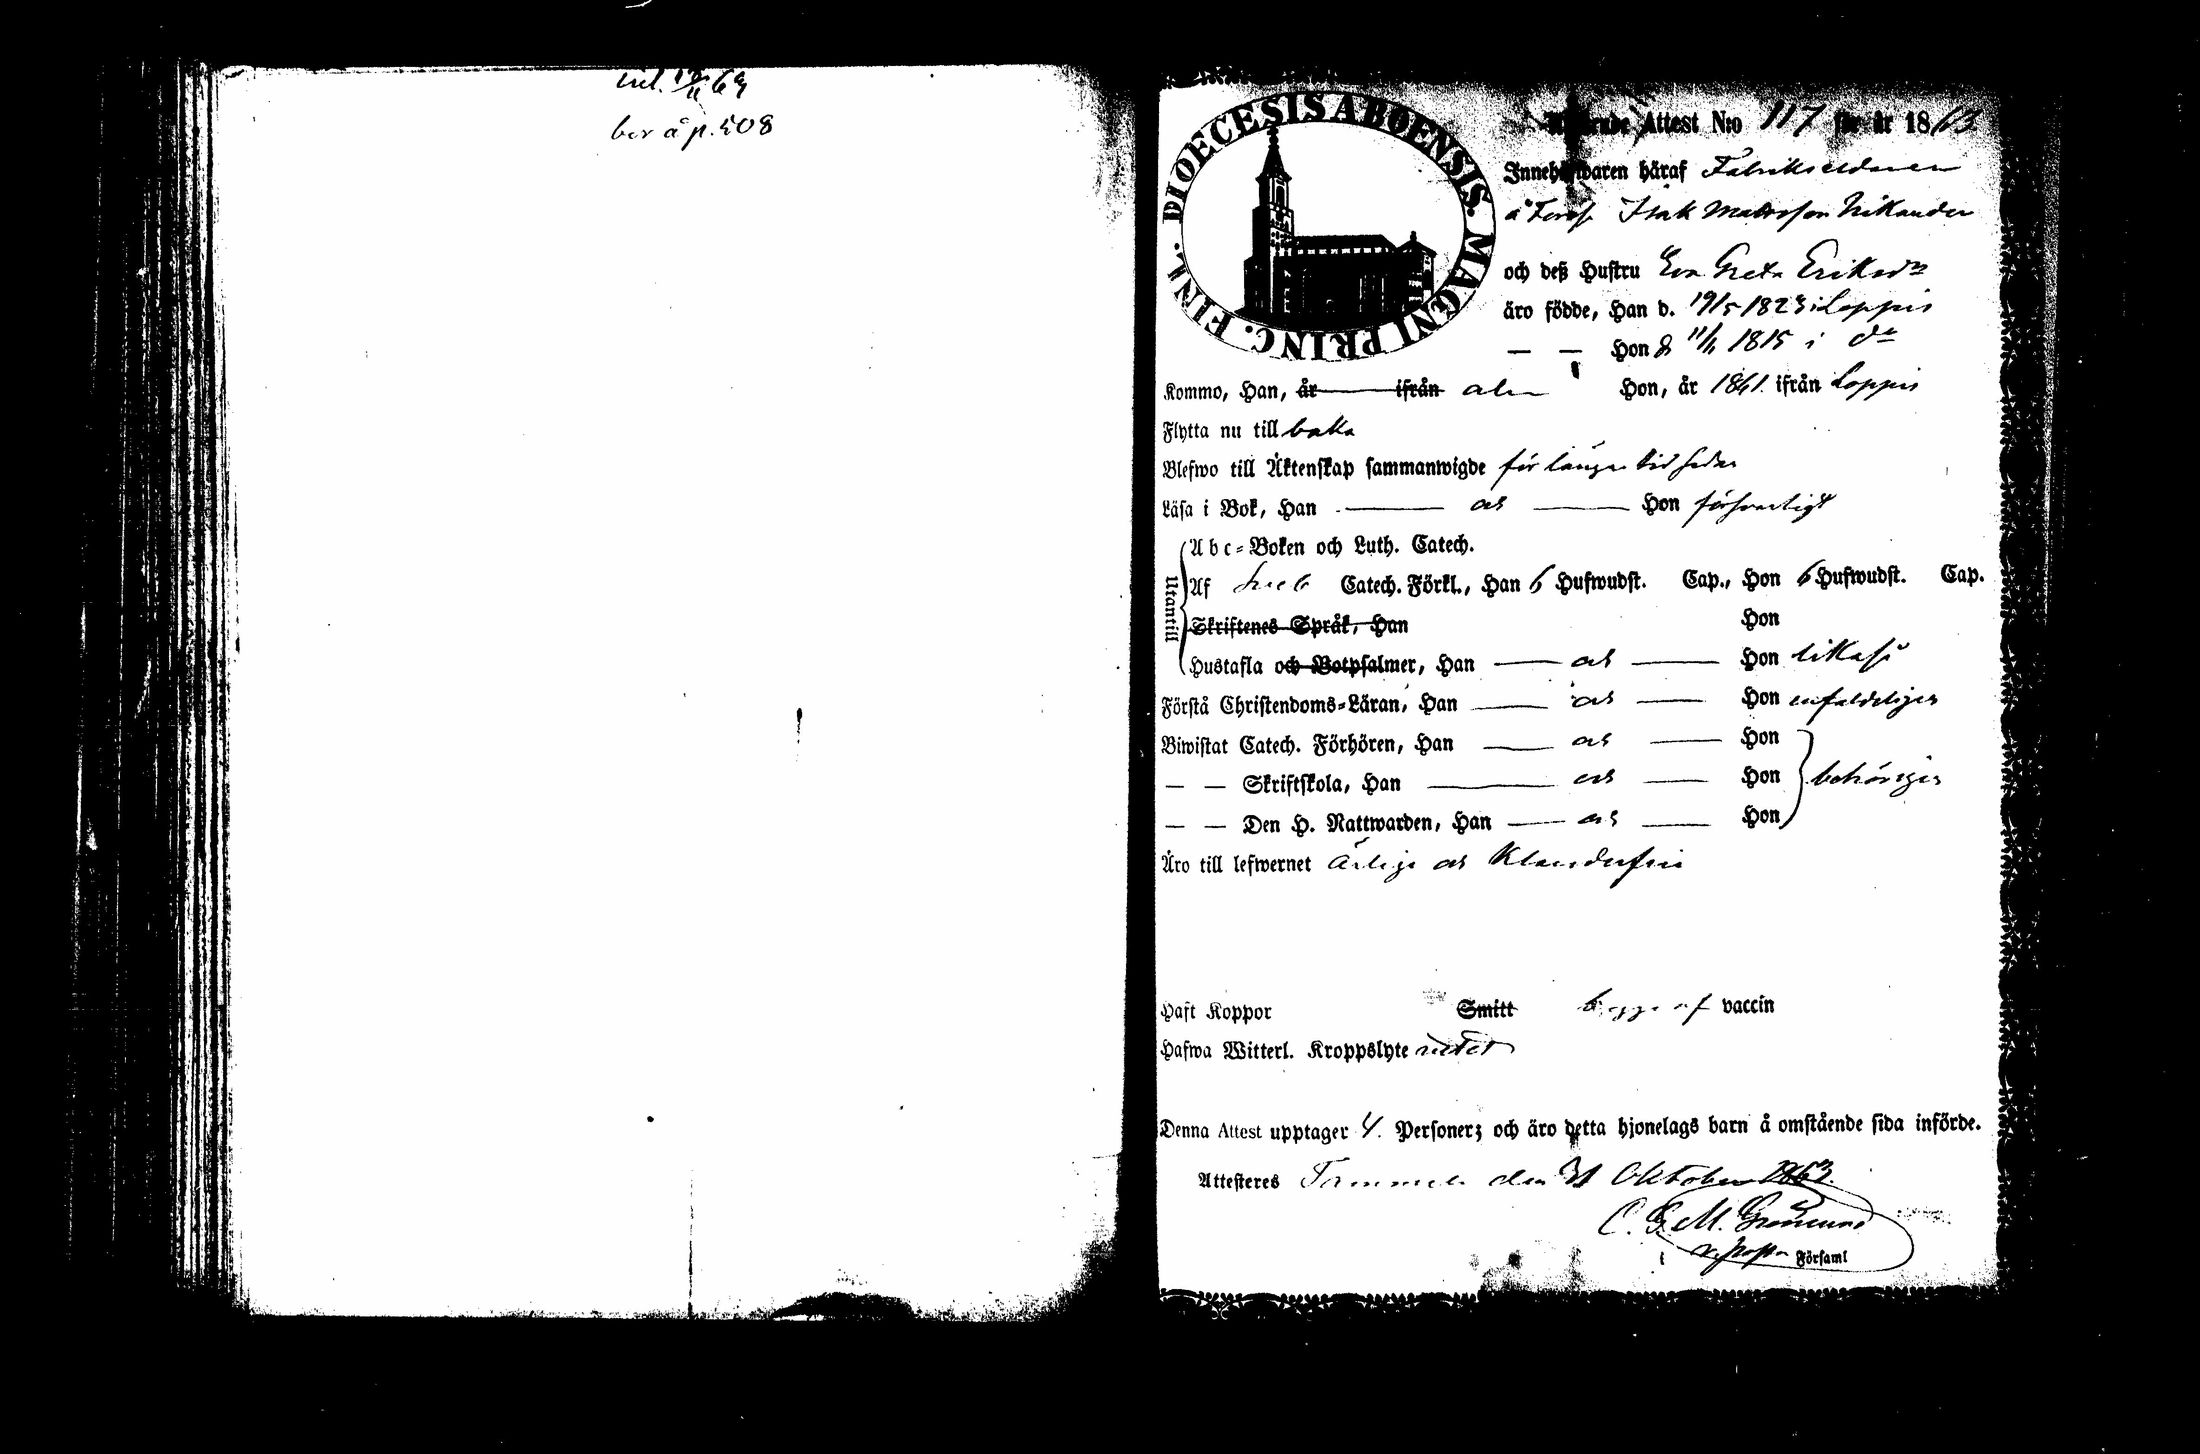 inl. 69
ber å p. 508
DIOECESIS ABOENSIS. MAGNI PRINC. FINL.
Attest N:o 117 för år 1863
Innehafwaren häraf Fabrikseldaren
å Forss Isak Matsson Nikander
och deß Hustru Eva Greta Eriksdr
äro födde, Han d. 19/5 1823 i Loppis
— — Hon d 1815 i do
Kommo, Han, år ifrån och Hon, år 1861. ifrån Loppis
Flytta nu till baka
Blefwo till Äktenskap sammanwigde för länge tid sedan
Läsa i Bok, Han — och — Hon försvarligt
Utantill
Abc-Boken och Luth. Catech.
Af Sveb Catech. Förkl., Han 6 Hufwudst. Cap., Hon 6 Hufwudst. Cap.
Skriftenes Språk, Han Hon
Hustafla och Botpsalmer, Han — och — Hon likaså
Förstå Christendoms-Läran, Han — och — Hon enfaldeligen
Biwistat Catech. Förhören, Han — och — Hon
— — Skriftskola, Han — och — Hon behörigen
— — Den H. Nattwarden, Han — och — Hon
Äro till lefwernet ärliga och klanderfria
Haft Koppor Smitt begge af vaccin
Hafwa Witterl. Kroppslyte intet
Denna Attest upptager 4. Personer; och äro detta hjonelags barn å omstående sida införde.
Attesteres Tammela den 31 Oktober 1863.
C. G. M. Grönlund
v. pastor Församl